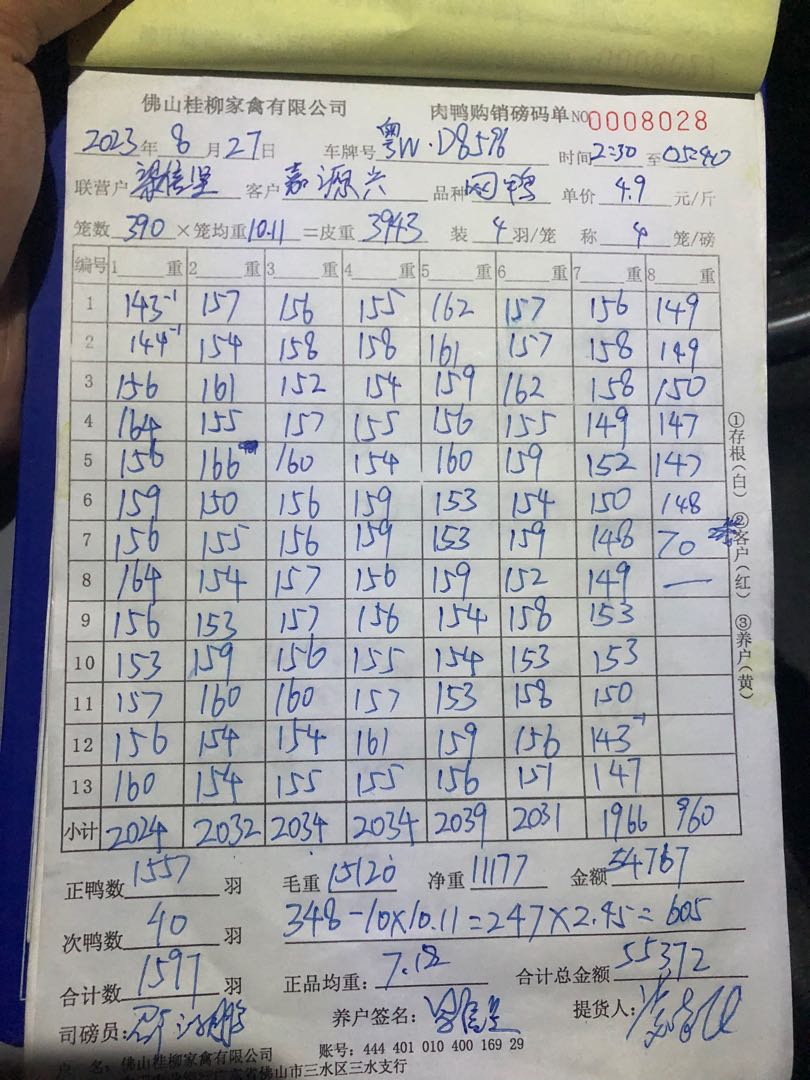 佛山桂柳家禽有限公司 肉鸭购销磅码单 NO 0008028
2023年8月27日 车牌号 粤W·D8596 时间2:30至05:40
联营户 梁信坚 客户 嘉源兴 品种 肉鸭 单价 4.9 元/斤
笼数 390 ×笼均重10.11=皮重 3943 装 4 羽/笼 称 4 笼/磅
编号 1 重 2 重 3 重 4 重 5 重 6 重 7 重 8 重
1 143-1 157 156 155 162 157 156 149
2 144-1 154 158 158 161 157 158 149
3 156 161 152 154 159 162 158 150
4 164 155 157 155 156 155 149 147
5 156 166 160 154 160 159 152 147
6 159 150 156 159 153 154 150 148
7 156 155 156 159 153 159 148 70
8 164 154 157 156 159 152 149 —
9 156 153 157 156 154 158 153
10 153 159 156 155 154 153 153
11 157 160 160 157 153 158 150
12 156 154 154 161 159 156 143-1
13 160 154 155 155 156 151 147
小计 2024 2032 2034 2034 2039 2031 1966 960
①存根(白) ②客户(红) ③养户(黄)
正鸭数 1557 羽 毛重 15120 净重 11177 金额 54767
次鸭数 40 羽 348-10×10.11=247×2.45=605
合计数 1597 羽 正品均重: 7.18 合计总金额 55372
司磅员: 养户签名: 梁信坚 提货人:
户 名: 佛山桂柳家禽有限公司 账号: 444 401 010 400 169 29
广东省佛山市三水区三水支行